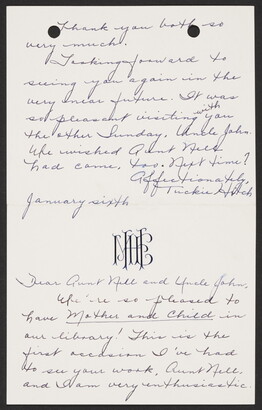 Thank you both so
very much.
Looking forward to
seeing you again in the
very near future. It was
so pleasant visiting with
the other Sunday, Uncle John.
We wished Aunt Nell
had come, too. Next time?
Affectionately,
Tuckie
January sixth
Dear Aunt Nell and Uncle John,
We're so pleased to
have Mother and Child in
our library! This is the
first occasion I've had
to see your work, Aunt Nell,
and I am very enthusiastic.